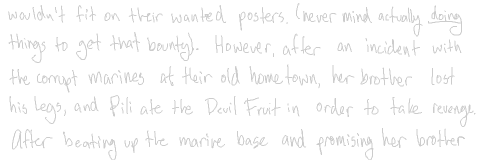 wouldn't fit on their wanted posters. (never mind actually doing
things to get that bounty). However, after an incident with
the corrupt marines at their old hometown, her brother lost
his legs, and Pili ate the Devil Fruit in order to take revenge.
After beating up the marine base and promising her brother